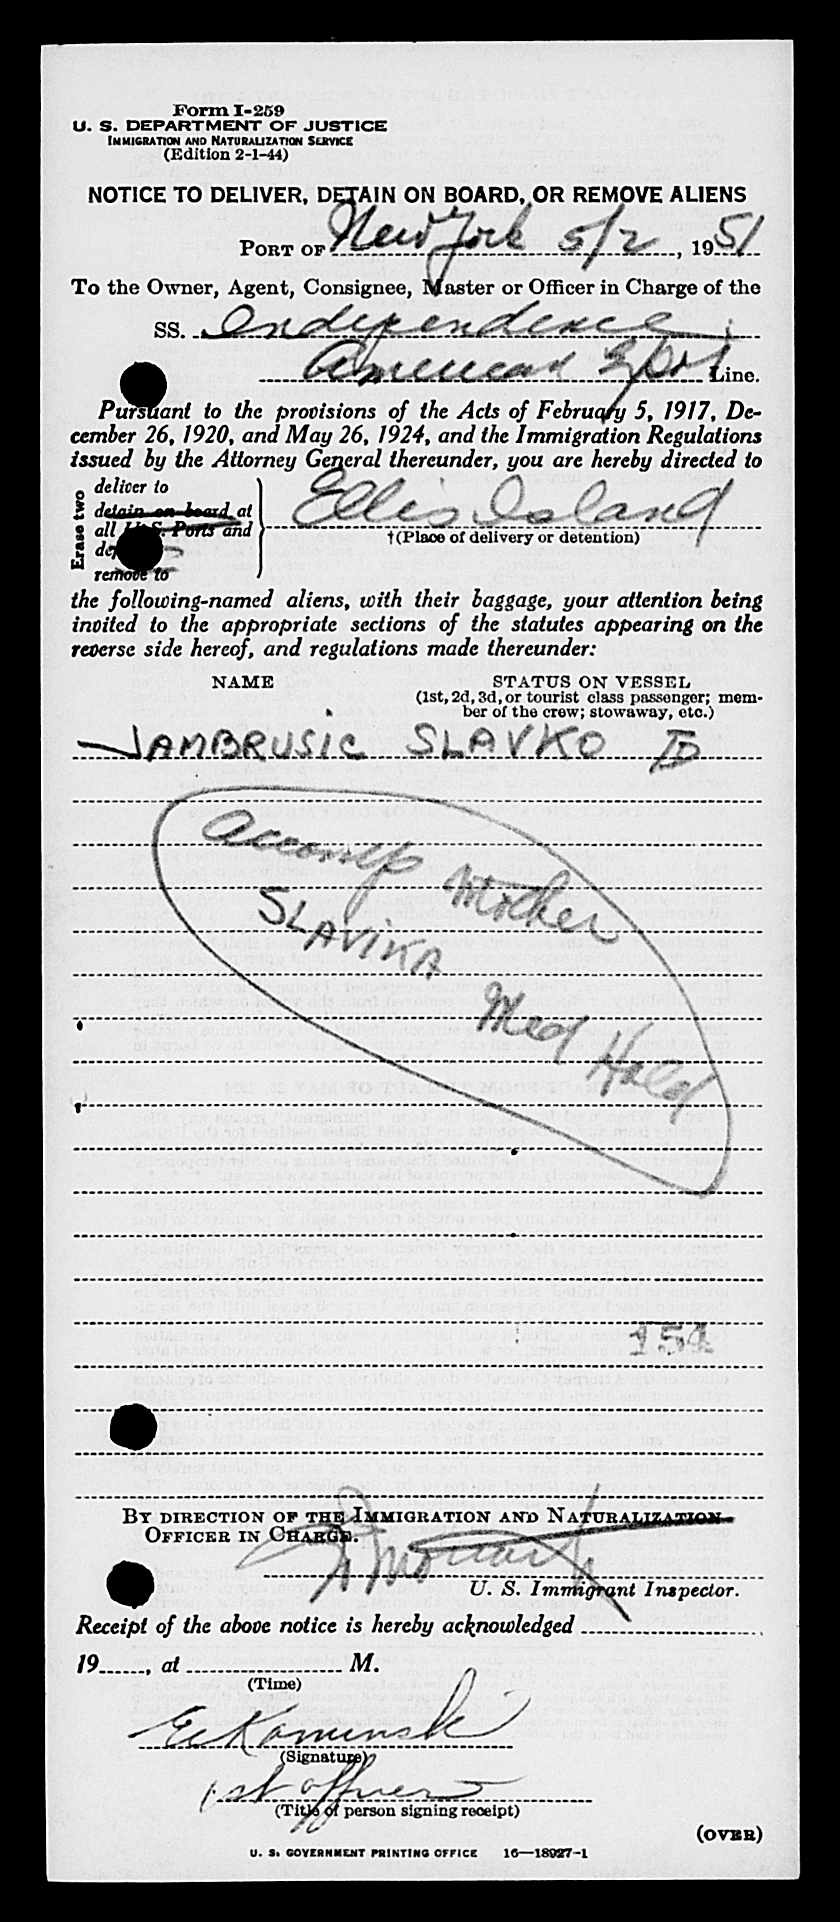 Form I-259
U. S. DEPARTMENT OF JUSTICE
IMMIGRATION AND NATURALIZATION SERVICE
(Edition 2-1-44)
NOTICE TO DELIVER, DETAIN ON BOARD, OR REMOVE ALIENS
PORT OF New York 5/2, 1951
To the Owner, Agent, Consignee, Master or Officer in Charge of the
SS. Independence
American Export Line.
Pursuant to the provisions of the Acts of February 5, 1917, De-
cember 26, 1920, and May 26, 1924, and the Immigration Regulations
issued by the Attorney General thereunder, you are hereby directed to
Erase two
deliver to
detain on board at
all U. S. Ports and
remove to
Ellis Island
†(Place of delivery or detention)
the following-named aliens, with their baggage, your attention being
invited to the appropriate sections of the statutes appearing on the
reverse side hereof, and regulations made thereunder:
NAME STATUS ON VESSEL
(1st, 2d, 3d, or tourist class passenger; mem-
ber of the crew; stowaway, etc.)
JAMBRUSIC SLAVKO
accomp Mother
SLAVIKA
Med Hold
154
BY DIRECTION OF THE IMMIGRATION AND NATURALIZATION
OFFICER IN CHARGE.
U. S. Immigrant Inspector.
Receipt of the above notice is hereby acknowledged
19 , at M.
(Time)
E Kaminski
(Signature)
1st officer
(Title of person signing receipt)
(OVER)
U. S. GOVERNMENT PRINTING OFFICE 16—18927-1